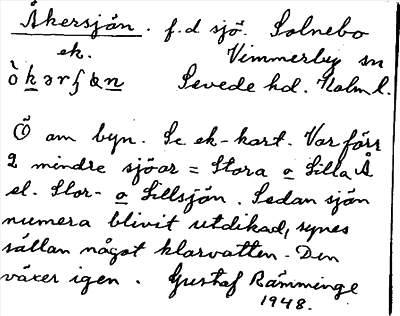 Åkersjön. f.d sjö. Solnebo
ek. Vimmerby sn
òkərʃön Sevede hd. Kalm l.
Ö om byn. Se ek-kart. Var förr
2 mindre sjöar = Stora o Lilla Å
el. Stor- o Lillsjön. Sedan sjön
numera blivit utdikad, synes
sällan något klarvatten. Den
växer igen. Gustaf Rämminge
1948.